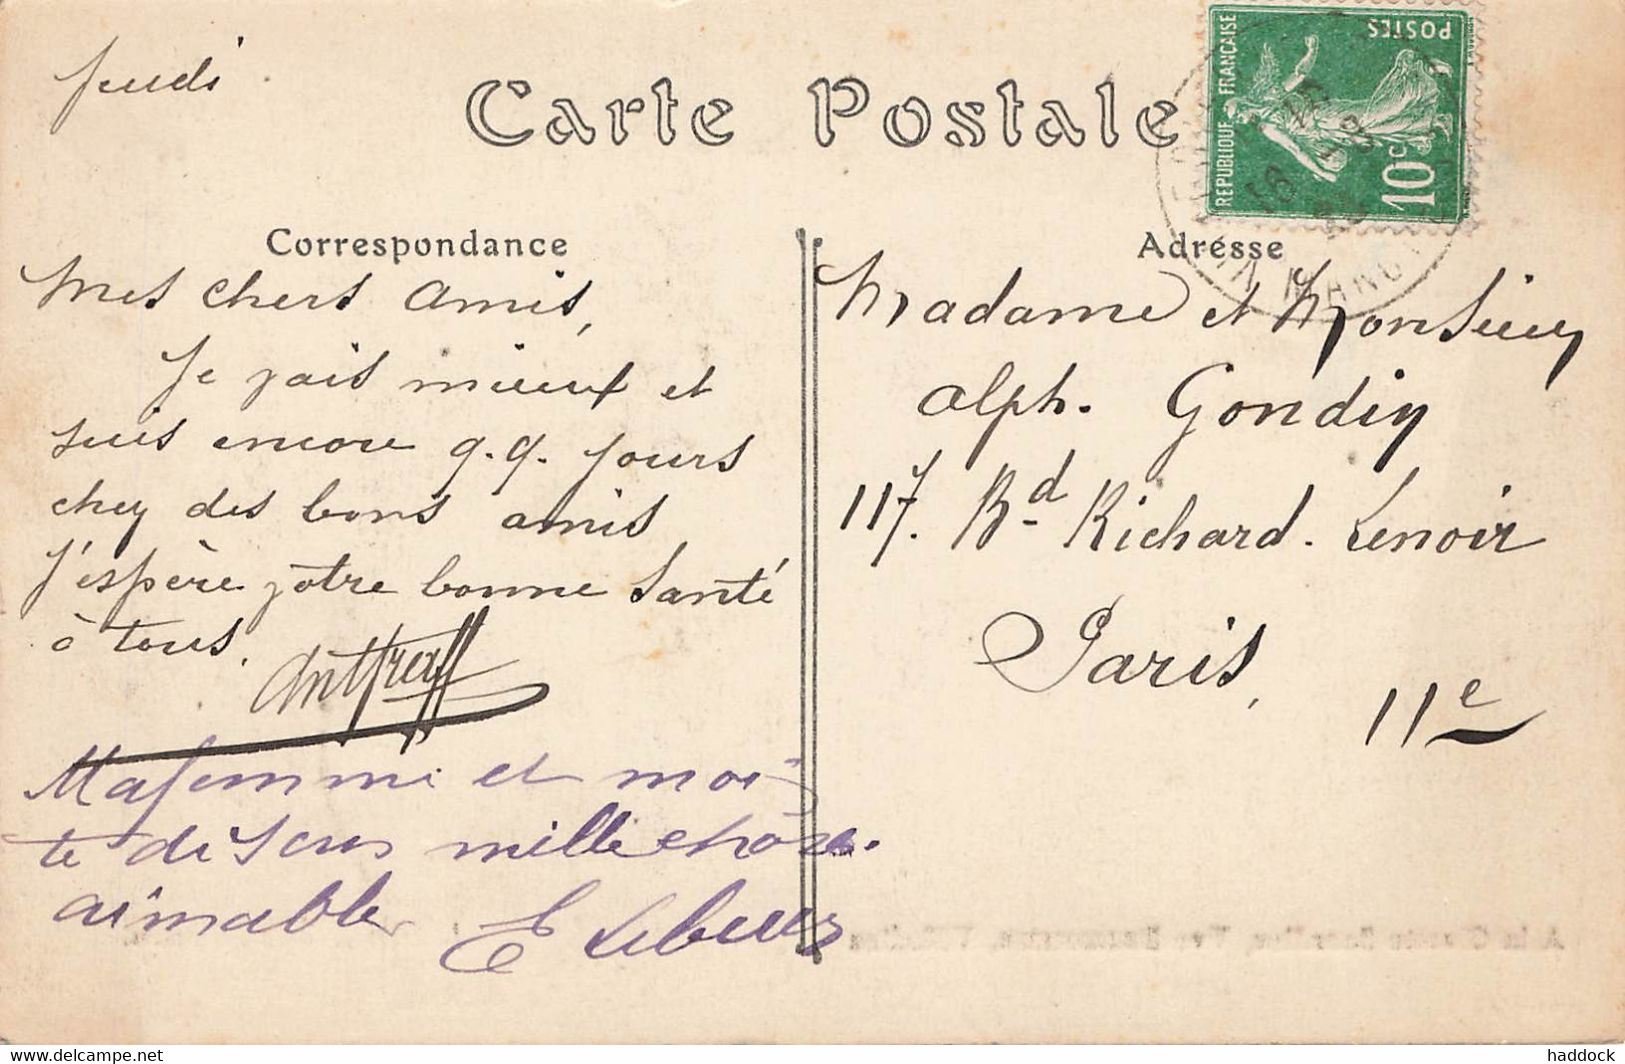 Jeudi
Carte Postale
REPUBLIQUE FRANÇAISE
POSTES
10c
Correspondance
Adresse
Mes chers amis,
Je vais mieux et
suis encore q.q. jours
chez des bons amis
J'espère votre bonne santé
à tous.
Ma femme et moi
te disons mille chose
aimable
E
Madame et Monsieur
Alph. Gondin
117. Bd Richard. Lenoir
Paris,
11e
delcampe.net
haddock